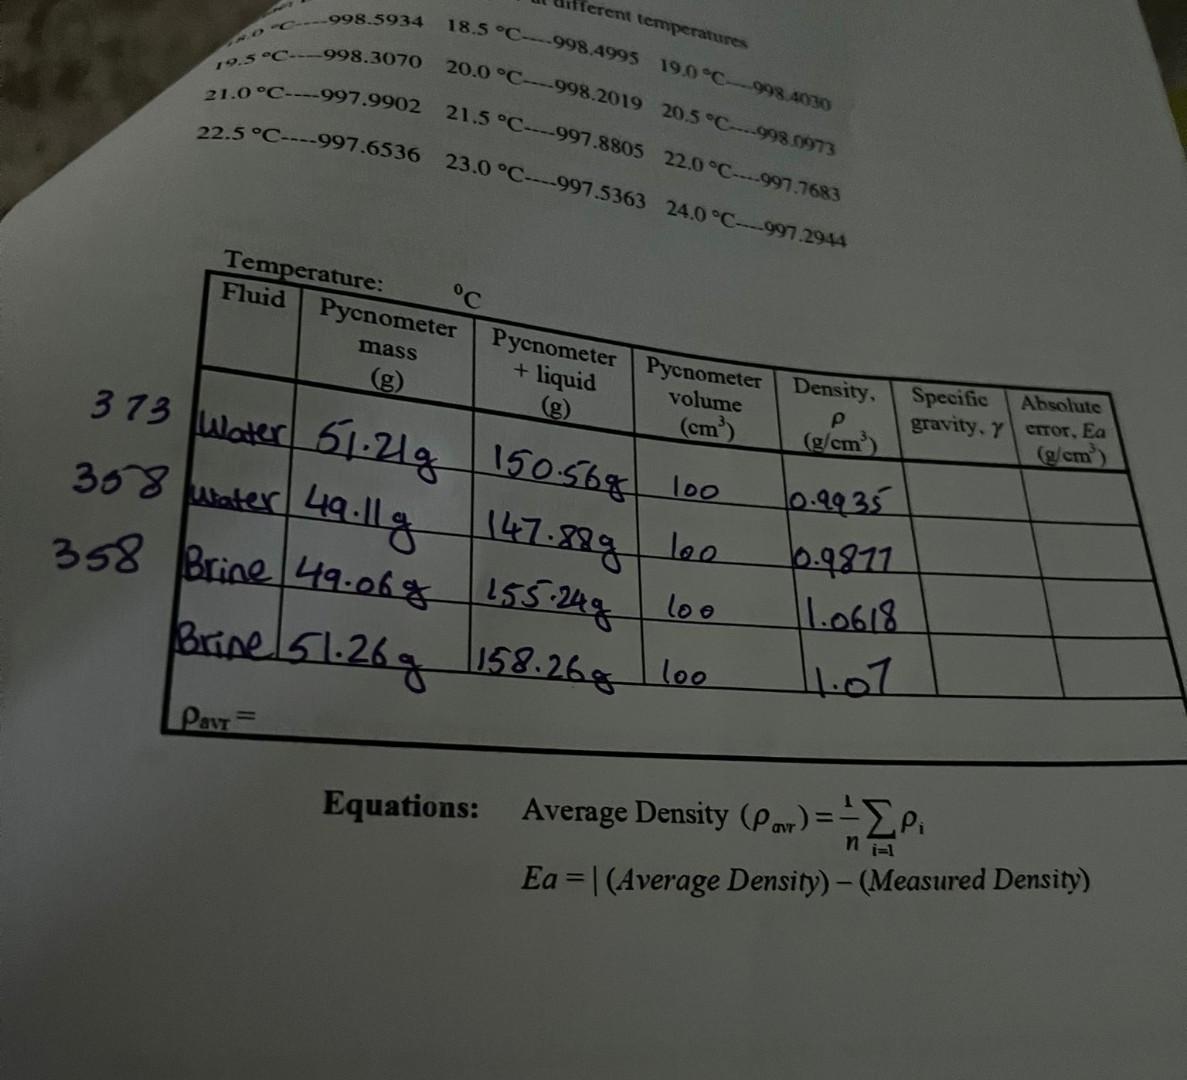 different temperatures
18.0 °C----998.5934 18.5 °C----998.4995 19.0 °C----998.4030
19.5 °C----998.3070 20.0 °C----998.2019 20.5 °C----998.0973
21.0 °C----997.9902 21.5 °C----997.8805 22.0 °C----997.7683
22.5 °C----997.6536 23.0 °C----997.5363 24.0 °C----997.2944
Temperature: °C
Fluid Pycnometer mass (g) Pycnometer + liquid (g) Pycnometer volume (cm³) Density, ρ (g/cm³) Specific gravity, γ Absolute error, Ea (g/cm³)
373 Water 51.21g 150.56g 100 0.9935
358 Water 49.11g 147.88g 100 0.9877
358 Brine 49.06g 155.24g 100 1.0618
Brine 51.26g 158.26g 100 1.07
ρavr =
Equations: Average Density (ρavr) = 1/n ∑i=1 ρi
Ea = | (Average Density) – (Measured Density)